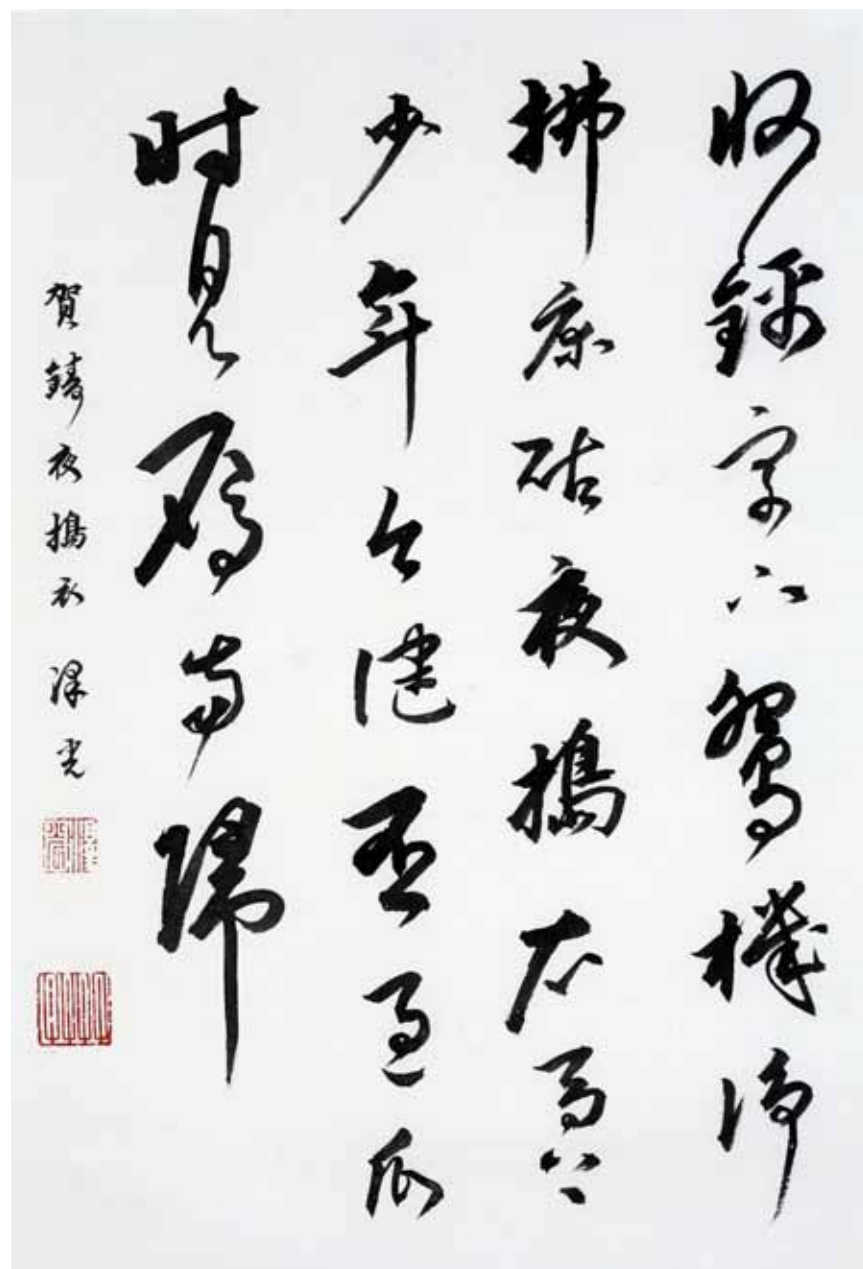 收錦字下鴛機淨
拂床砧夜搗衣馬上
少年今健否過瓜
时見雁南歸
賀鑄夜搗衣